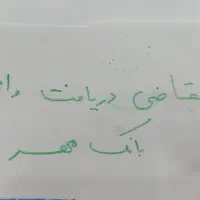 تقاضی دریافت وام
بانک مهر